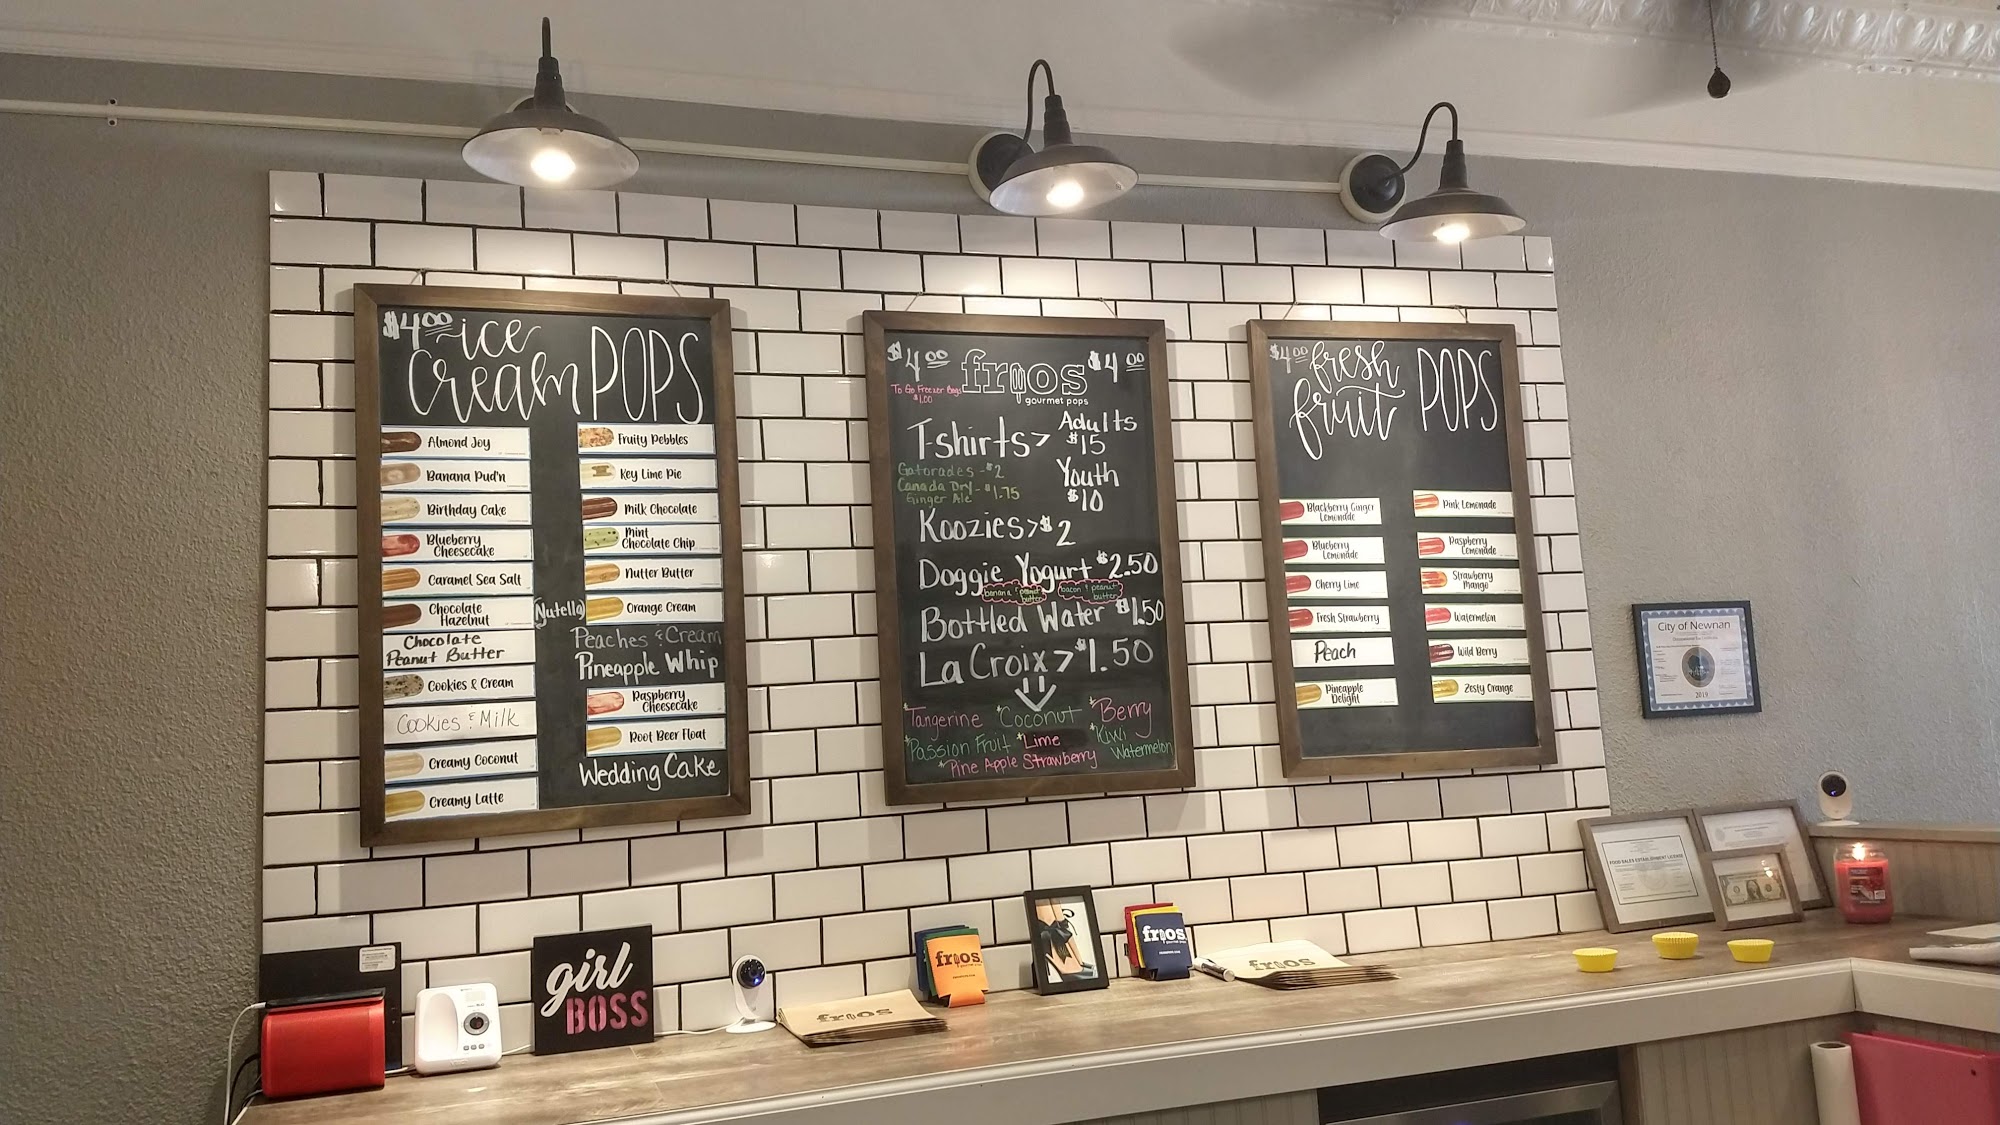 $4.00 ice
cream POPS
Almond Joy
Banana Pud'n
Birthday Cake
Blueberry
Cheesecake
Caramel Sea Salt
Chocolate
Hazelnut
(Nutella)
Chocolate
Peanut Butter
Cookies & Cream
Cookies & Milk
Creamy Coconut
Creamy Latte
Fruity Pebbles
Key Lime Pie
Milk Chocolate
Mint
Chocolate Chip
Nutter Butter
Orange Cream
Peaches & Cream
Pineapple Whip
Raspberry
Cheesecake
Root Beer Float
Wedding Cake
$4.00 frios $4.00
gourmet pops
To Go Freezer Bags
$1.00
T-shirts> Adults
$15
Youth
$10
Gatorades - $2
Canada Dry - $1.75
Ginger Ale
Koozies> $2
Doggie Yogurt $2.50
banana & peanut
butter
bacon & peanut
butter
Bottled Water $1.50
La Croix> $1.50
*Tangerine *Coconut *Berry
*Passion Fruit *Lime *Kiwi
Watermelon
*Pine Apple Strawberry
$4.00 fresh
fruit POPS
Blackberry Ginger
Lemonade
Blueberry
Lemonade
Cherry Lime
Fresh Strawberry
Peach
Pineapple
Delight
Pink Lemonade
Raspberry
Lemonade
Strawberry
Mango
Watermelon
Wild Berry
Zesty Orange
City of Newnan
2019
FOOD SALES ESTABLISHMENT LICENSE
girl
BOSS
frios
frios
frios
gourmet pops
frios